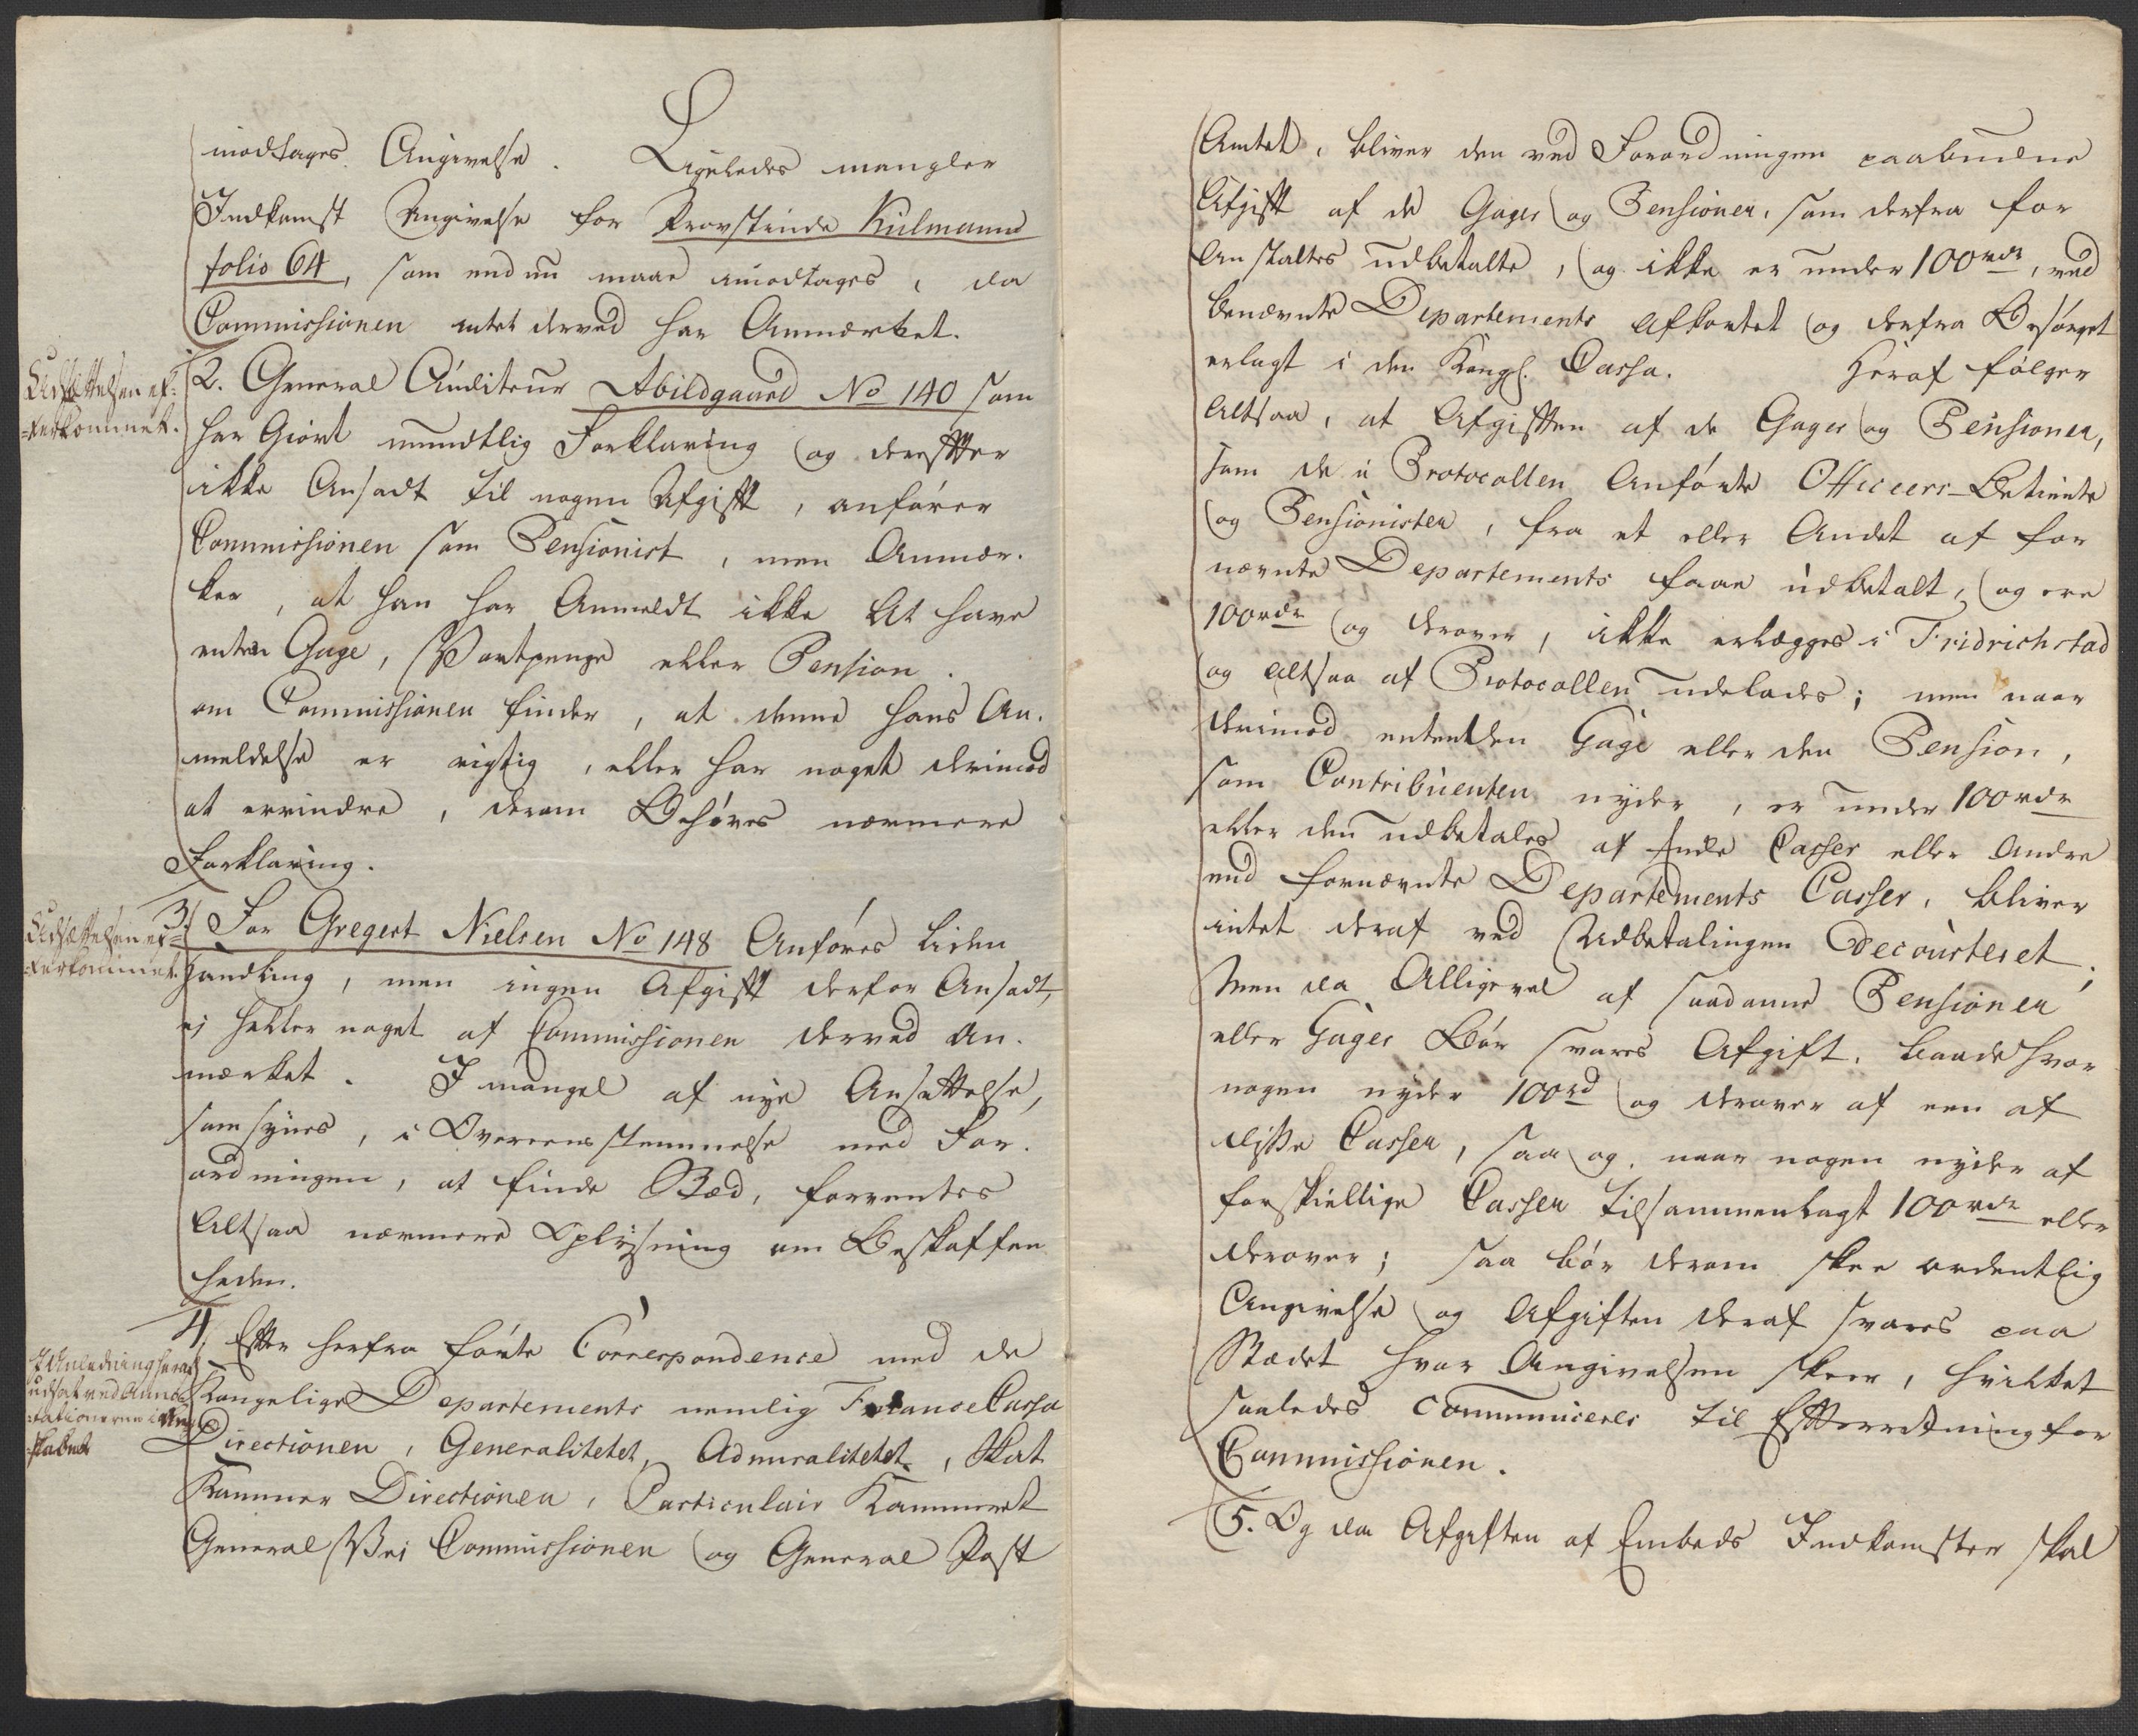 modtages Angivelse. Ligeledes mangler
Indkomst Angivelse for Provstinde Kulmann
folio 64, som endnu maae modtages, da
Commissionen intet derved har Anmærket.
Udsættelsen ef=
=terkommet.
2. General Auditeur Abildgaard No 140 som
har Giort mundtlig Forklaring og derefter
ikke Ansadt til nogen Afgift, anfører
Commissionen som Pensionist, men Anmær-
ker, at han har Anmeldt ikke At have
enten Gage, Vartpenge eller Pension.
om Commissionen finder, at denne hans An-
meldelse er rigtig, eller har noget derimod
at erindre, derom Behøves nærmere
Forklaring.
Udsættelsen ef=
=terkommet.
3/ For Gregert Nielsen No 148 Anføres liden
Handling, men ingen Afgift derfor Ansadt,
ej heller noget af Commissionen derved An-
mærket. I mangel af nye Ansættelse,
som synes, i Overeensstemmelse med For-
ordningen, at finde Stæd, forventes
Altsaa nærmere Oplysning om Beskaffen
heden.
I Anledning heraf
udsat ved Anno=
tationerne i Regn
skabet
4. Efter herfra førte Correspondence med de
Kongelige Departements nemlig Finance Cassa
Directionen, Generalitetet, Admiralitetet, Skat
Kammer Directionen, Particulair Kammeret
General Vei Commissionen og General Post
Amtet, bliver den ved Forordningen paabudne
Afgift af de Gager og Pensioner, som derfra for
Anstaltes udbetalte, og ikke er under 100rdr, ved
benævnte Departements Afkortet og derfra Besørget
erlagt i den Kongl. Cassa. Heraf følger
Altsaa, at Afgiften af de Gager og Pensioner,
som de i Protocollen Anførte Officeers-Betiente
og Pensionister, fra et eller Andet af for
nævnte Departements faae udbetalt, og ere
100rdr og derover, ikke erlægges i Fridrichstad
og Altsaa af Protocollen udelades; men naar
derimod enten den Gage eller den Pension,
som Contribuenten nyder, er under 100rdr
eller den udbetales af Andre Casser eller Andre
end fornævnte Departements Casser, bliver
intet deraf ved Udbetalingen Decourteret;
Men da Alligevel af saadanne Pensioner
eller Gager Bør svares Afgift, baade hvor
nogen nyder 100rd og derover af een af
disse Casser, saa og, naar nogen nyder af
forskiellige Casser tilsammenlagt 100rdr eller
derover; saa bør derom skee ordentlig
Angivelse og Afgiften deraf svares paa
Stædet hvor Angivelsen skeer, hvilket
saaledes Communiceres til Efterretning for
Commissionen.
5. Og da Afgiften af Embeds Indkomster skal